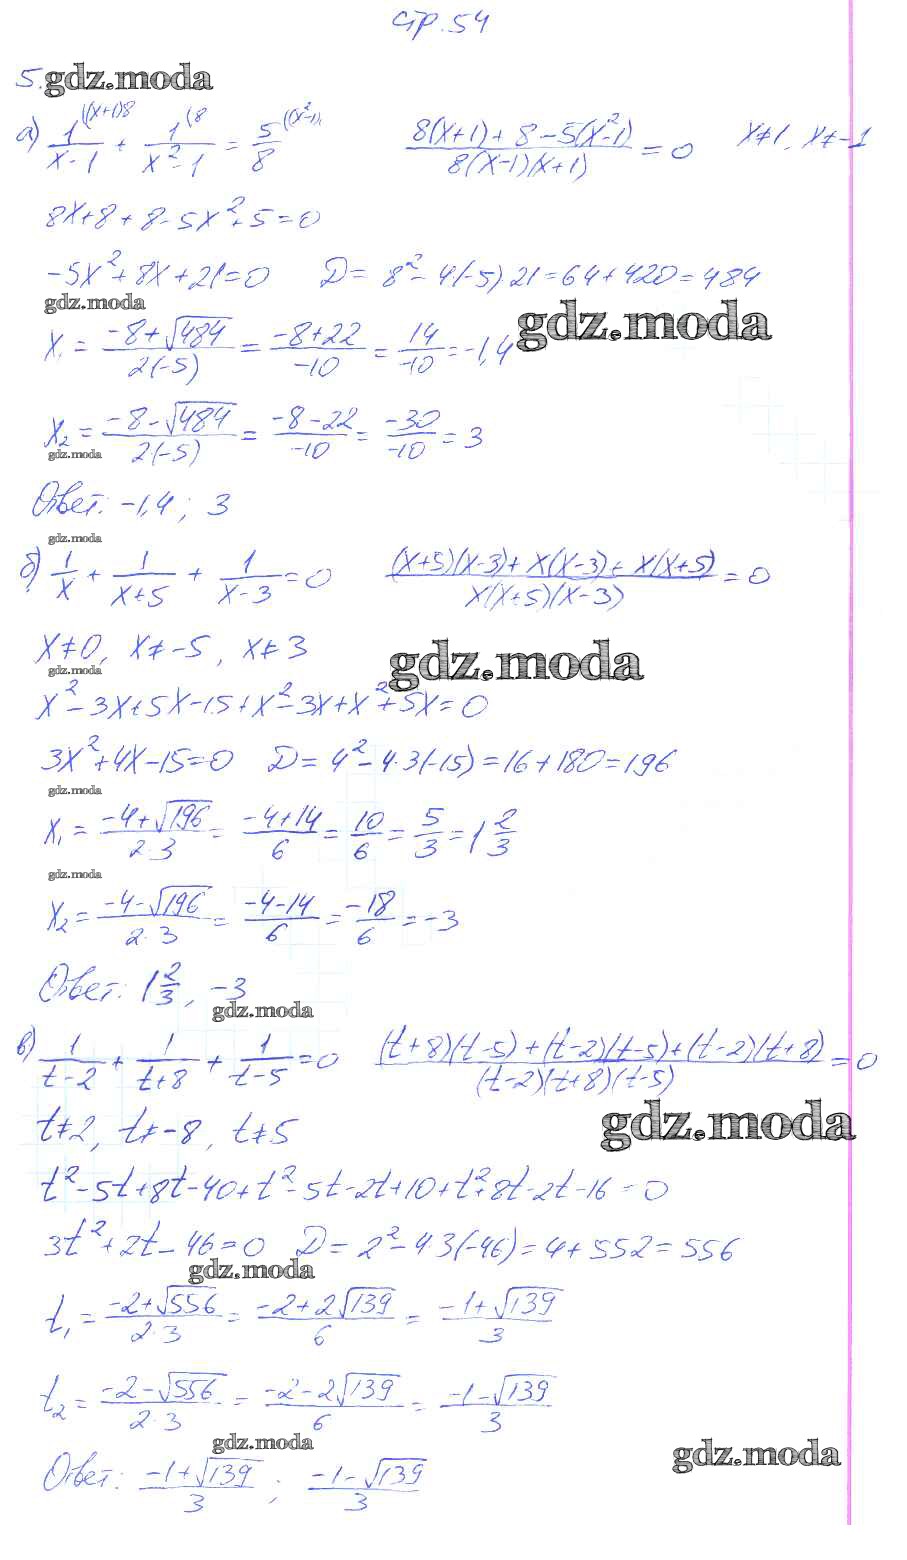 стр. 54
5. gdz.moda
а) 1/(x-1) ((x+1)8 + 1/(x²-1) (8 = 5/8 ((x²-1) (8(x+1)+8-5(x²-1))/(8(x-1)(x+1)) = 0 x≠1, x≠-1
8x+8+8-5x²+5=0
-5x²+8x+21=0 D= 8²-4(-5)·21=64+420=484
gdz.moda
gdz.moda
x₁ = (-8+√484)/(2(-5)) = (-8+22)/(-10) = 14/(-10) = -1,4
x₂ = (-8-√484)/(2·(-5)) = (-8-22)/(-10) = (-30)/(-10) = 3
gdz.moda
Ответ: -1,4; 3
gdz.moda
б) 1/x + 1/(x+5) + 1/(x-3) = 0 ((x+5)(x-3)+x(x-3)+x(x+5))/(x(x+5)(x-3)) = 0
x≠0, x≠-5, x≠3
gdz.moda
gdz.moda
x²-3x+5x-15+x²-3x+x²+5x=0
3x²+4x-15=0 D=4²-4·3(-15)=16+180=196
gdz.moda
x₁ = (-4+√196)/(2·3) = (-4+14)/6 = 10/6 = 5/3 = 1 2/3
gdz.moda
x₂ = (-4-√196)/(2·3) = (-4-14)/6 = -18/6 = -3
Ответ: 1 2/3, -3
gdz.moda
в) 1/(t-2) + 1/(t+8) + 1/(t-5) = 0 ((t+8)(t-5)+(t-2)(t-5)+(t-2)(t+8))/((t-2)(t+8)(t-5)) = 0
t≠2, t≠-8, t≠5
gdz.moda
t²-5t+8t-40+t²-5t-2t+10+t²+8t-2t-16=0
3t²+2t-46=0 D=2²-4·3(-46)=4+552=556
gdz.moda
t₁ = (-2+√556)/(2·3) = (-2+2√139)/6 = (-1+√139)/3
t₂ = (-2-√556)/(2·3) = (-2-2√139)/6 = (-1-√139)/3
gdz.moda
gdz.moda
Ответ: (-1+√139)/3 ; (-1-√139)/3